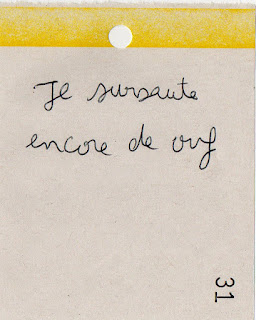 Je sursaute
encore de ouf
31